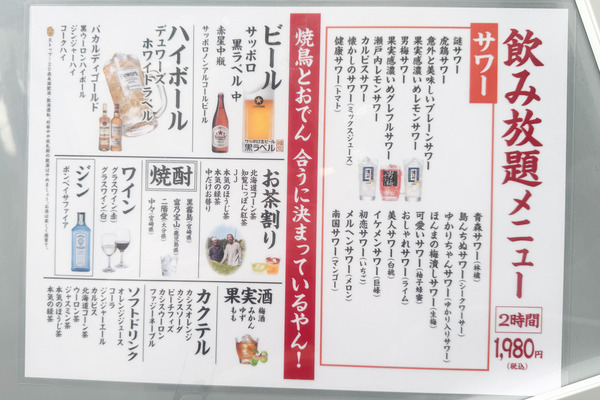 飲み放題メニュー
2時間
1,980円
(税込)
サワー
謎サワー
虎鶏サワー
意外と美味しいプレーンサワー
果実感濃いめレモンサワー
男梅サワー
果実感濃いめグレフルサワー
瀬戸内レモンサワー
カルピスサワー
懐かしのサワー(ミックスジュース)
健康サワー(トマト)
青森サワー(林檎)
島んちゅサワー(シークワーサー)
ゆかりちゃんサワー(ゆかり入りサワー)
ほんまの梅漬しサワー(生梅)
可愛いサワー(柚子蜂蜜)
おしゃれサワー(ライム)
美人サワー(白桃)
イケメンサワー(巨峰)
初恋サワー(いちご)
メルヘンサワー(メロン)
南国サワー(マンゴー)
焼鳥とおでん 合うに決まっているやん!
ビール
サッポロ
黒ラベル 中
赤星中瓶
サッポロノンアルコールビール
サッポロ生ビール
黒ラベル
ハイボール
デュワーズ
ホワイトラベル
バカルディゴールド
黒ウーロンハイボール
ジンジャーハイ
コークハイ
お茶割り
北海道コーン茶
知覧にっぽん紅茶
JJ
本気のほうじ茶
本気の緑茶
中だけお替り
焼酎
黒霧島(宮崎県)
富乃宝山(鹿児島県)
二階堂(大分県)
中々(宮崎県)
ワイン
グラスワイン(赤)
グラスワイン(白)
ジン
ボンベイサファイア
果実酒
梅酒
みかん
ゆず
もも
カクテル
カシスオレンジ
カシスソーダ
ピーチフィズ
カシスウーロン
ファジーネーブル
ソフトドリンク
オレンジジュース
コーラ
ジンジャーエール
カルピス
北海道コーン茶
ウーロン茶
ジャスミン茶
本気のほうじ茶
本気の緑茶